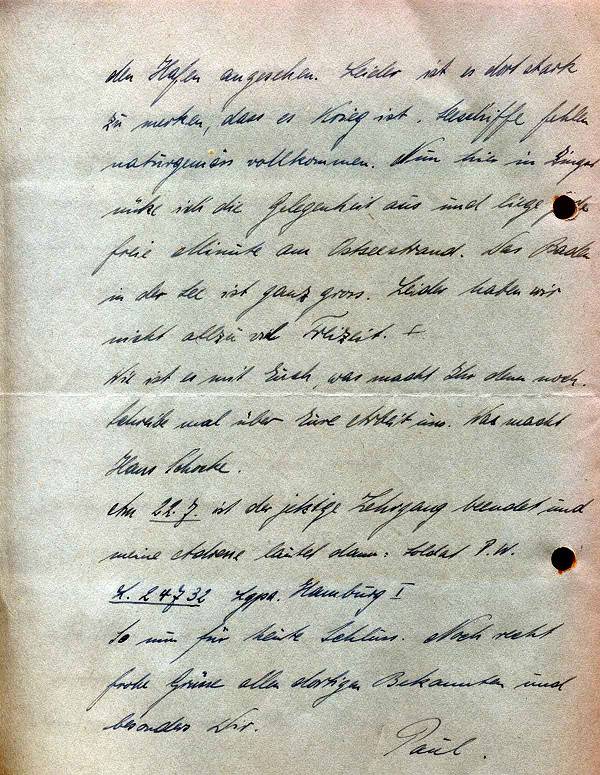 den Hafen angesehen. Leider ist es dort stark
zu merken, dass es Krieg ist. Seeschiffe fehlen
naturgemäss vollkommen. Nun hier in Zingst
nütze ich die Gelegenheit aus und liege jede
freie Minute am Ostseestrand. Das Baden
in der See ist ganz gross. Leider haben wir
nicht allzu viel Freizeit.
Wie ist es mit Euch, was macht Ihr denn noch.
Schreibe mal über Eure Arbeit uns. Was macht
Hans
Am 22.7. ist der jetzige Lehrgang beendet und
meine Adresse lautet dann: Soldat P.W.
L. 24732 Lgpa. Hamburg I
So nun für heute Schluss. Noch recht
frohe Grüsse allen dortigen Bekannten und
besonders Dir.
Paul.